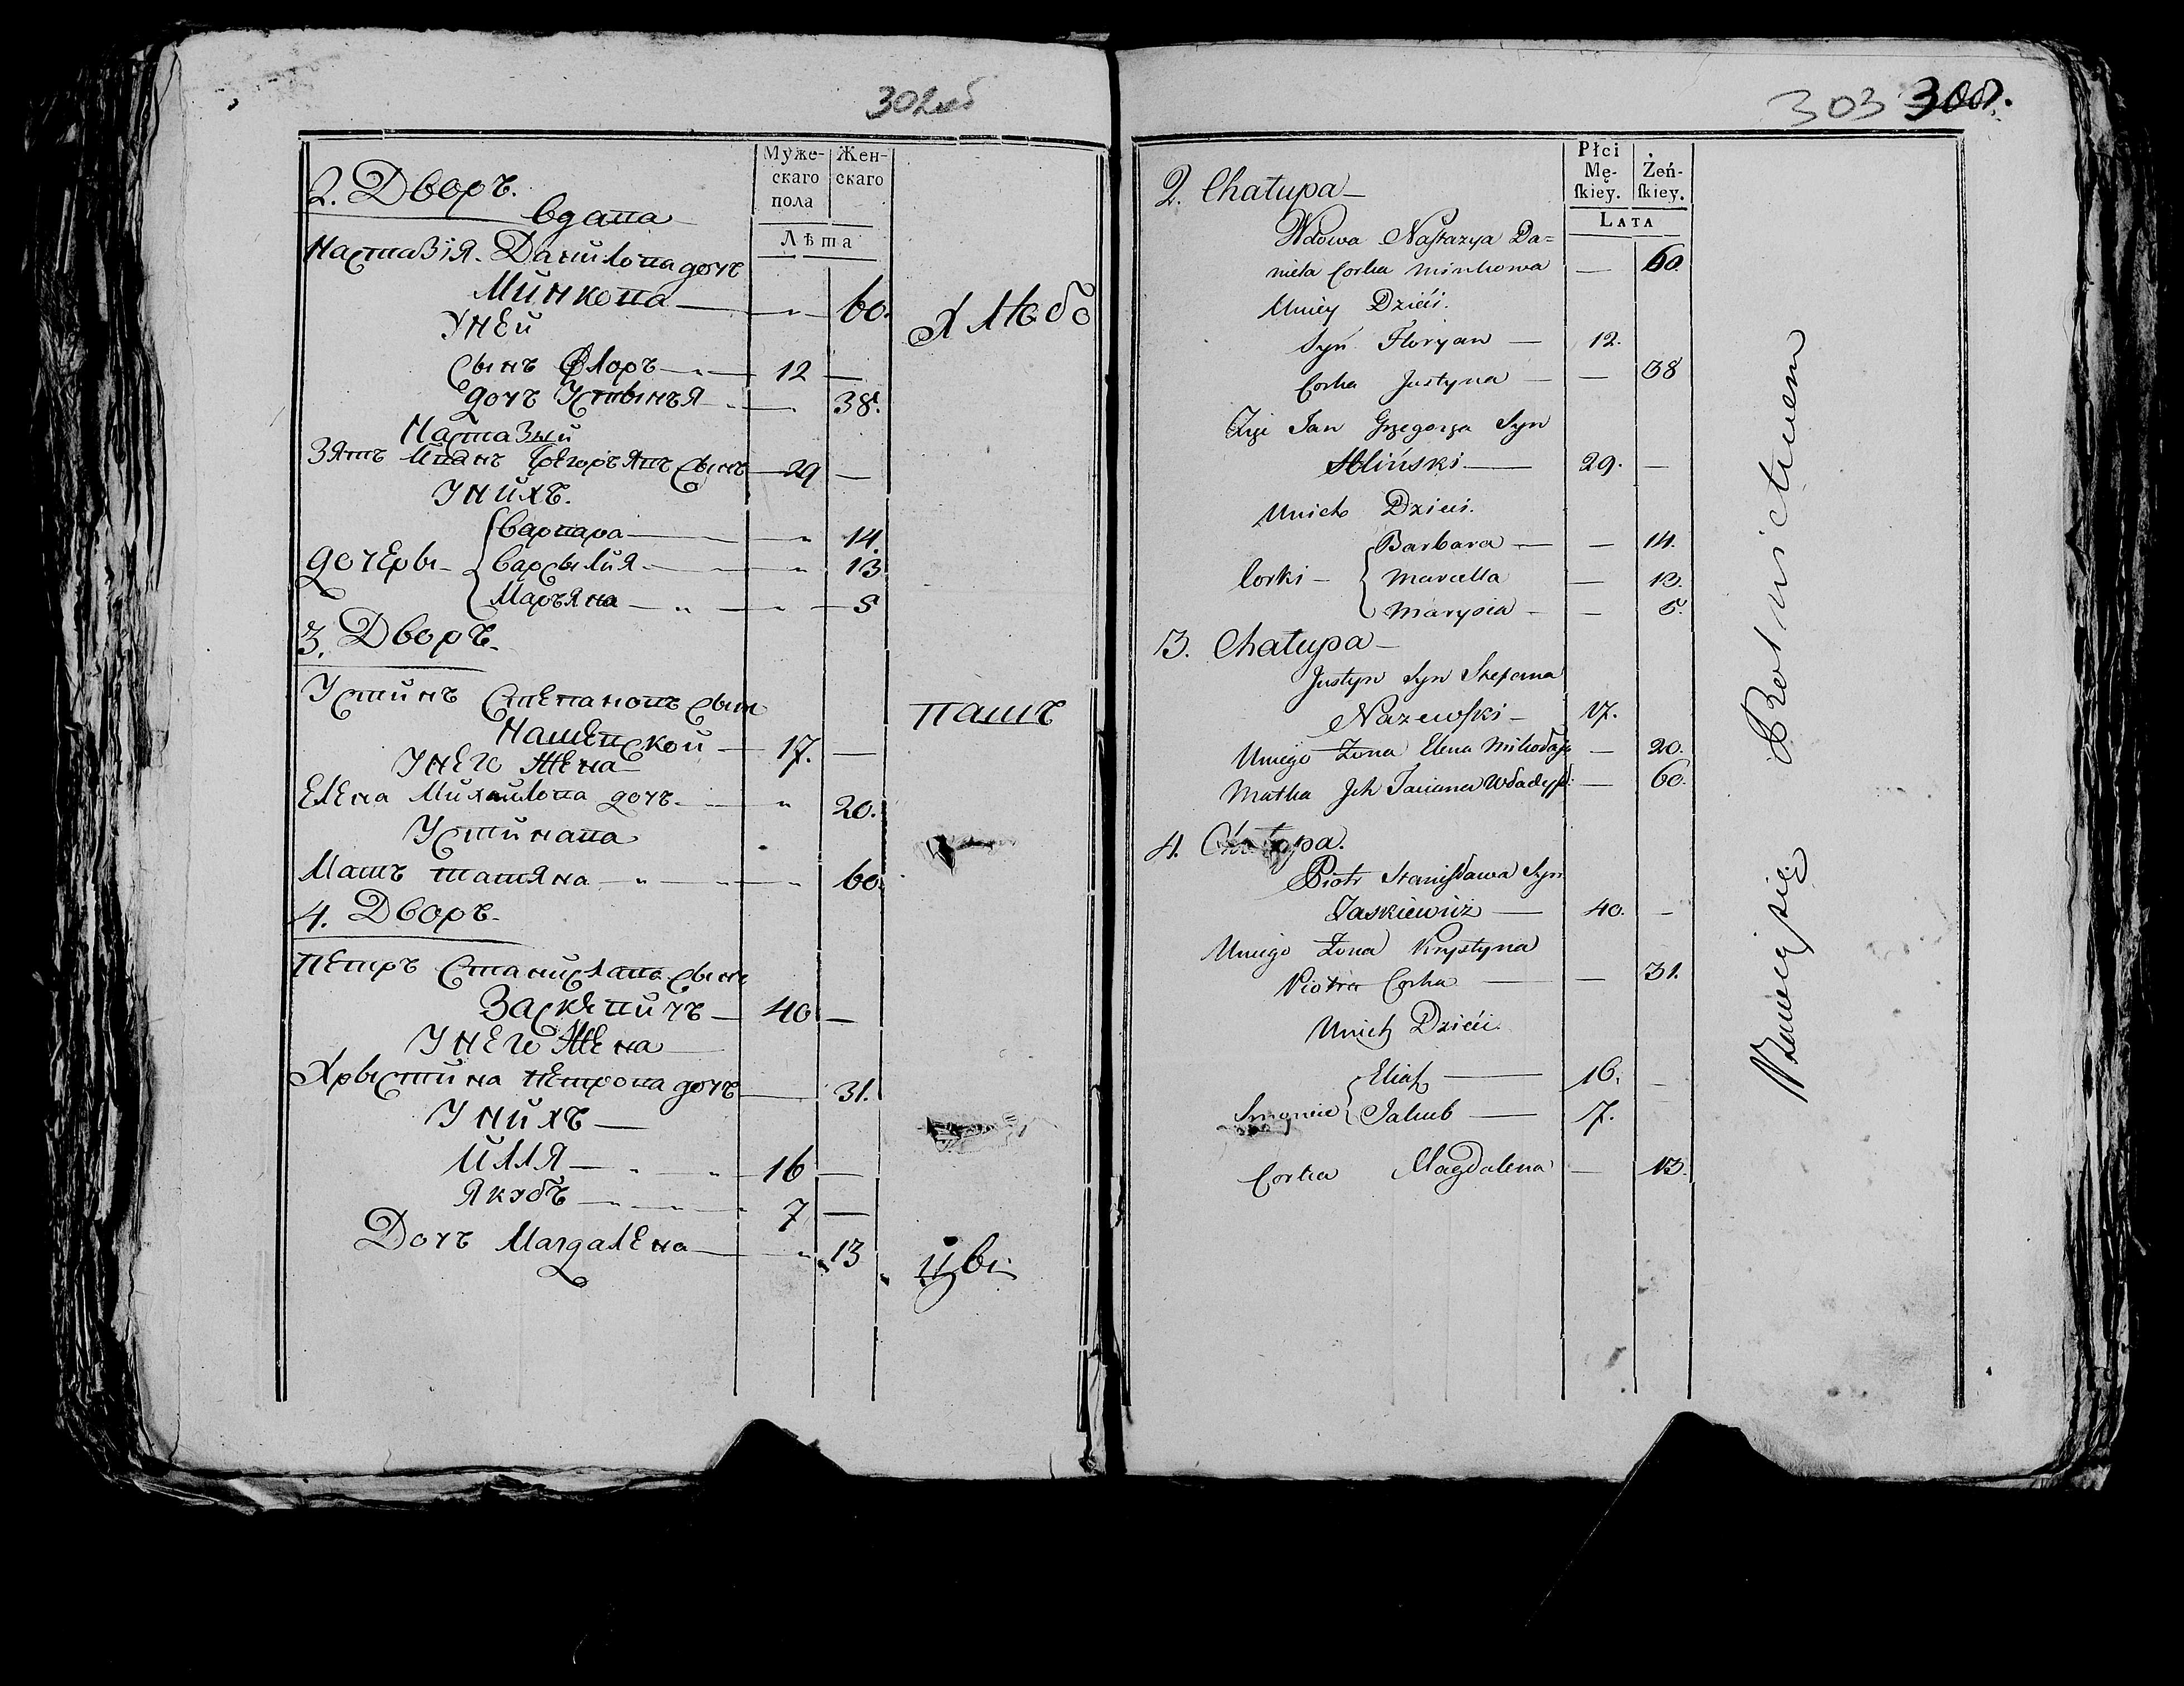 302об
Муже-
скаго
пола
Жен-
скаго
Лѣта
2. Дворъ.
вдава
Настазія Данилова дочъ
Минкова — 60.
Хлѣбо
У ней
Сынъ Флоръ — 12 —
дочъ Устынья — 38.
Настазыи
Зятъ Иванъ Грегорьявъ сынъ — 29 —
У нихъ.
Варвара — 14.
дочеры — Варсылия — 13
Марьяна — 5
3. Дворъ.
Устинъ Степановъ сын
пашъ
Нашевской — 17. —
У него жена
Елена Михайлова дочъ — 20.
Устинава
Матъ татяна — 60
4. Дворъ.
Петръ Станиславъ сынъ
Заскевичъ — 40 —
У него жена
Хрыстина Петрова дочъ — 31.
У нихъ —
Илля — 16 —
Якубъ — 7 —
Дочъ Магдалена — 13
цвы
303 300.
Płci
Mę-
ſkiey.
Żeń-
ſkiey.
LATA
2. Chałupa —
Wdowa Nastazya Da=
niela Corka Minkowa — 60.
U niey Dzieci.
Syn Floryan — 12.
Corka Justyna — 38
Zięć Jan Grzegorza Syn
Iliński — 29. —
U nich Dzieci.
Barbara — 14.
Corki — Marcella — 13.
Marysia — 5.
3. Chałupa —
Justyn Syn Stefana
Nazewski — 17.
U niego Żona Elena Mikołaja — 20.
Matka Ich Taciana — 60.
4. Chałupa.
Piotr Stanisława Syn
Zaskiewicz — 40. —
U niego Żona Krystyna
Piotra Corka — 31.
U nich Dzieci.
Eliasz — 16. —
Synowie Jakub — 7.
Corka Magdalena — 13.
Rolnictwem